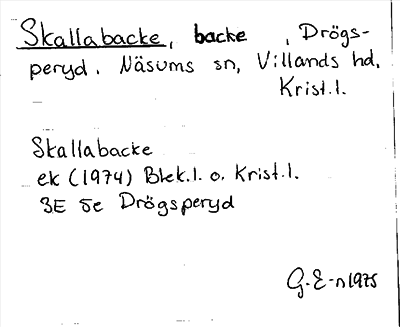 Skallabacke, backe, Drögs-
peryd. Näsums sn, Villands hd,
Krist.l.
Skallabacke
ek (1974) Blek.l. o. Krist.l.
3E 5e Drögsperyd
G.E-n 1975